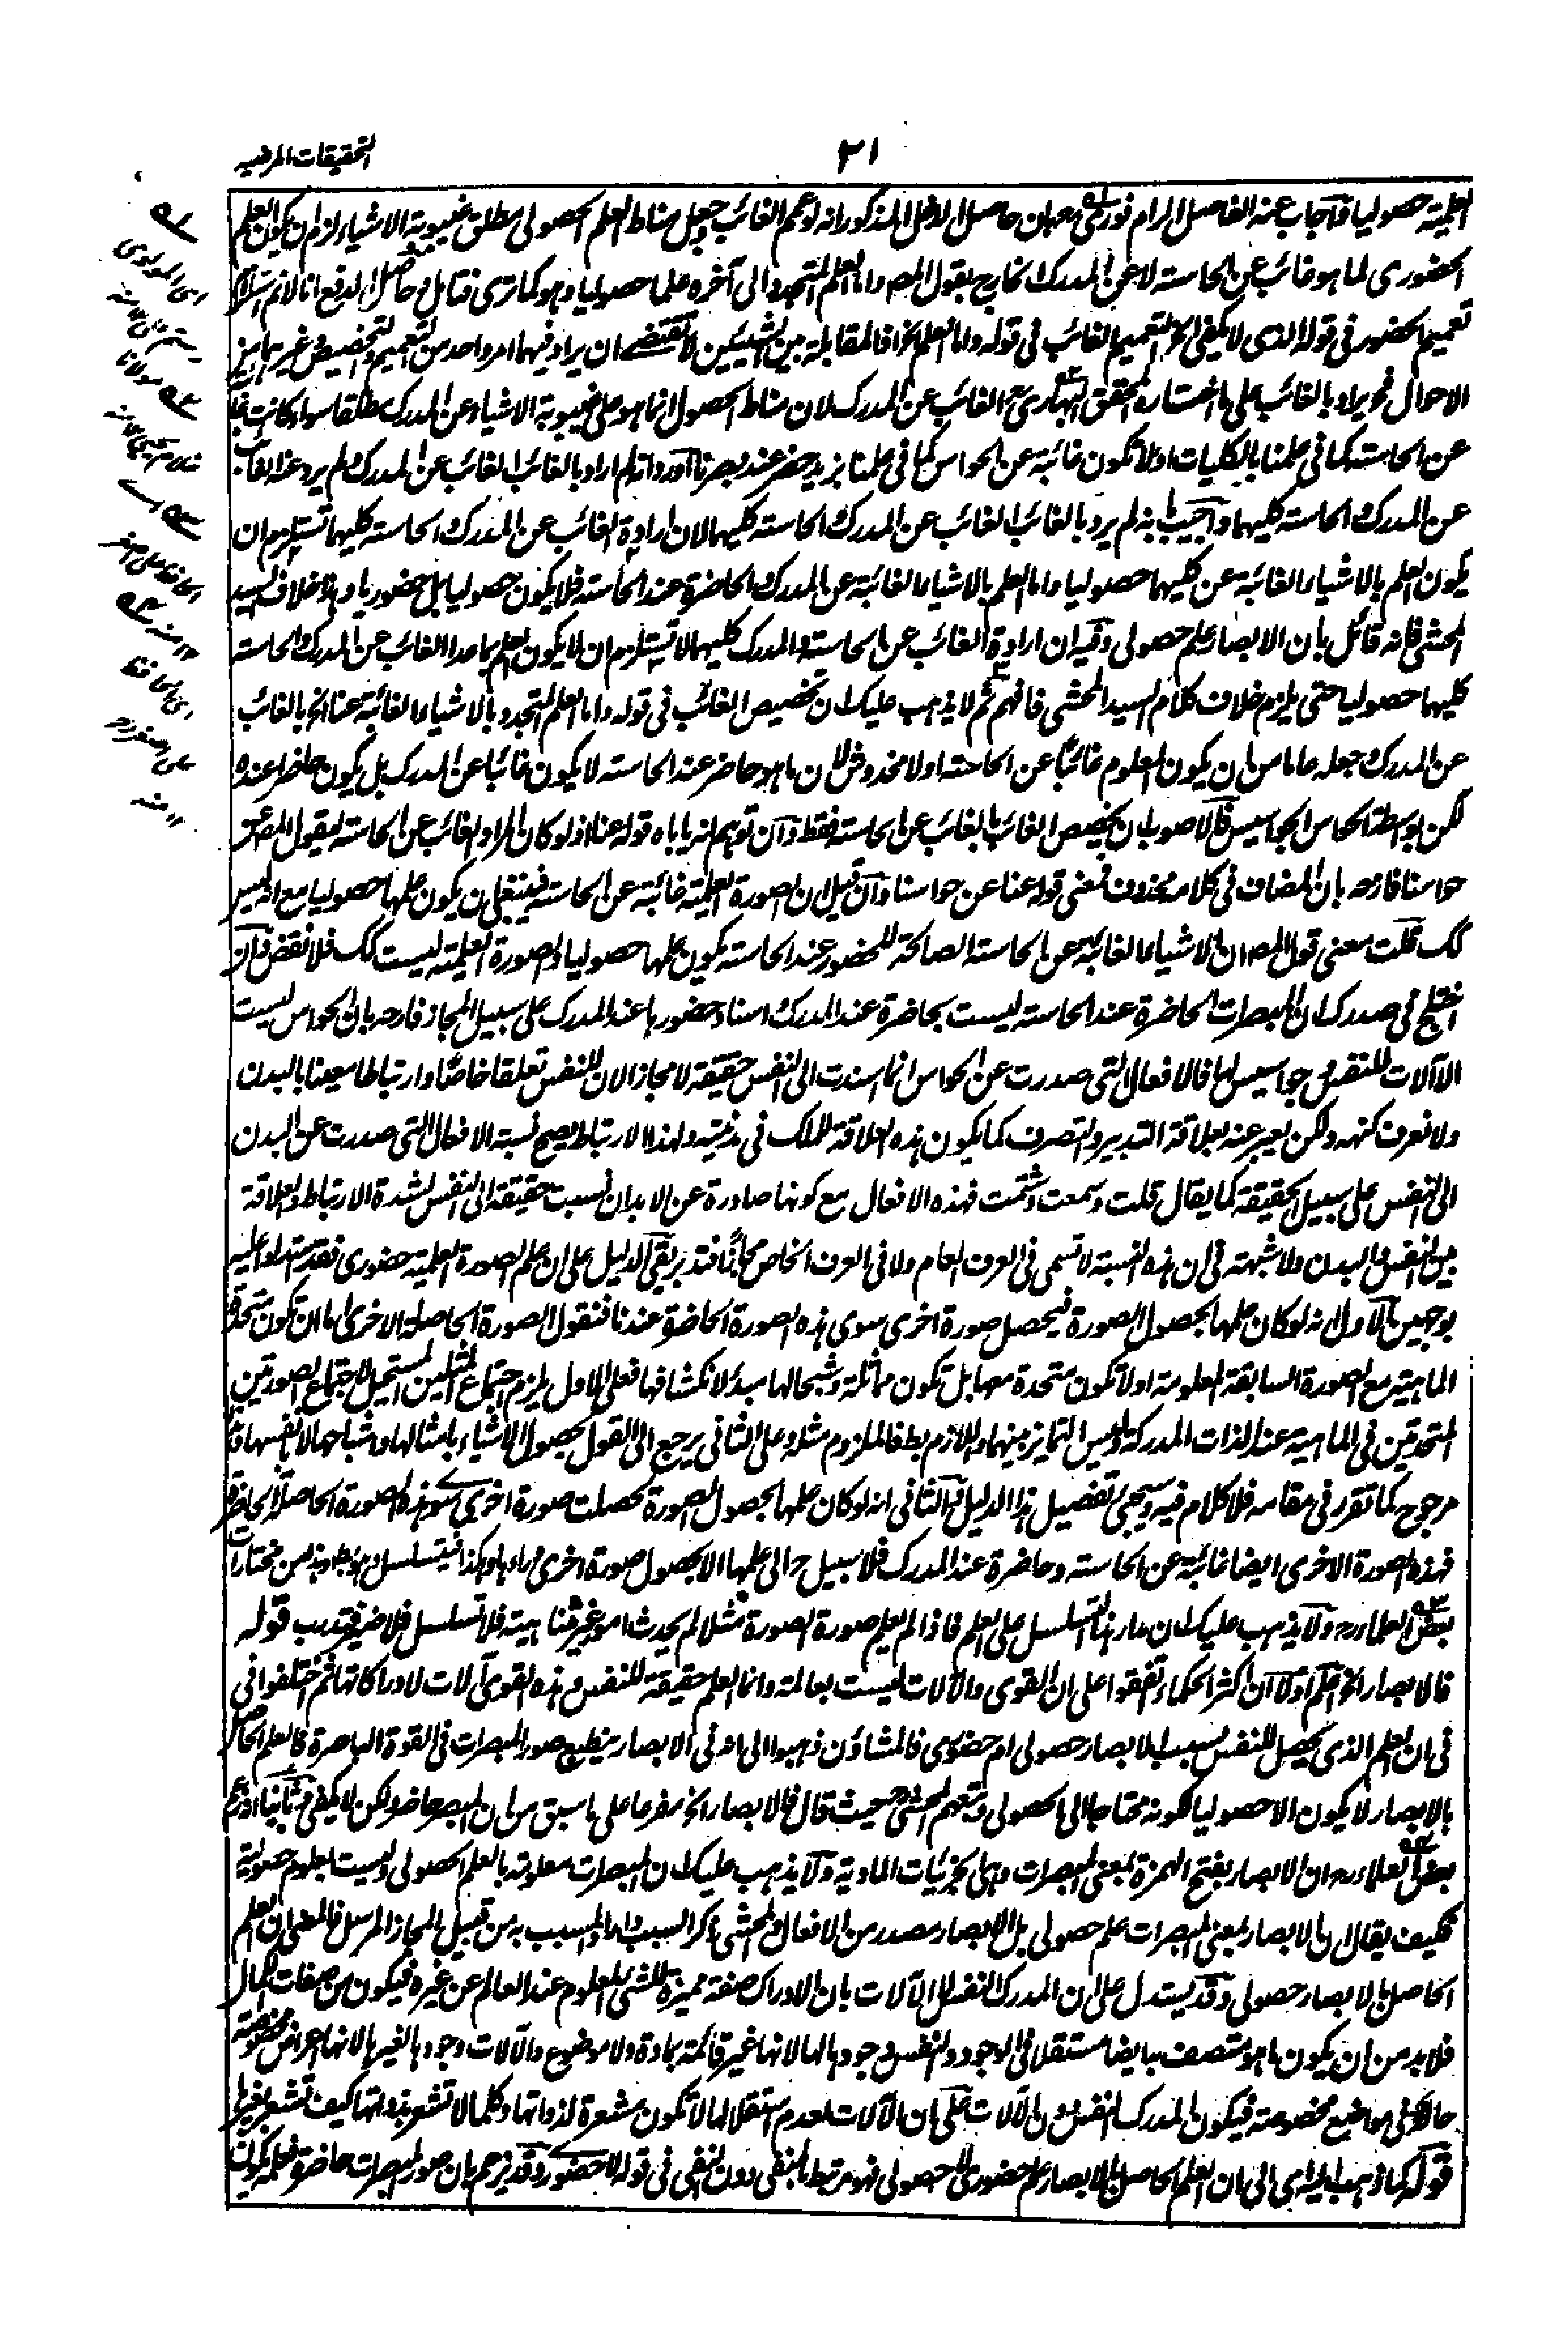 ٣١
التحقيقات المرضيه
العلمية حصوليا وأجاب عنه الفاضل الرامفوري بان حاصل الدخل المذكور انه لو عمم الغائب وجعل مناط العلم الحصولي مطلق غيبوبة الاشياء لزم ان يكون العلم
الحضوري لما هو غائب عن الحاسة لا عن المدرك الخارج بقول المصـ واما العلم المتجدد الى آخره علما حصوليا وهو كما ترى فتامل وحاصل الدفع انا لا نم استلزام
تعميم الحضور في قوله الذي لا يكفي الخ لتعميم الغائب في قوله واما العلم الخ فالمقابلة بين الشيئين لا تقتضي ان يراد فيهما امر واحد من التعميم والتخصيص وغيرهما من
الاحوال فح يراد بالغائب على ما اختاره المحقق البهاري رح الغائب عن المدرك لان مناط الحصول انما هو على غيبوبة الاشياء عن المدرك مطلقا سواء كانت غائبة
عن الحاسة كما في علمنا بالكليات اولا تكون غائبة عن الحواس كما في علمنا بزيد حضر عند بصرنا وأورد انه لم اراد بالغائب الغائب عن المدرك لم يرد عنه الغائب
عن المدرك والحاسة كليهما وأجيب بانه لم يرد بالغائب الغائب عن المدرك والحاسة كليهما لان ارادة الغائب عن المدرك والحاسة كليهما تستلزم ان
يكون العلم بالاشياء الغائبة عن كليهما حصوليا واما العلم بالاشياء الغائبة عن المدرك الحاضرة عند الحاسة فلا يكون حصوليا بل حضوريا وهذا خلاف السيد
المحشي فانه قائل بان الابصار علم حصولي وفيه ان ارادة الغائب عن الحاسة والمدرك كليهما لا تستلزم ان لا يكون العلم بما عدا الغائب عن المدرك والحاسة
كليهما حصوليا حتى يلزم خلاف كلام السيد المحشي فافهم ثم لا يذهب عليك ان تخصيص الغائب في قوله واما العلم المتجدد بالاشياء الغائبة عنا الخ بالغائب
عن المدرك وجعله عاما من ان يكون المعلوم غائبا عن الحاسة اولا مخدوش لان ما هو حاضر عند الحاسة لا يكون غائبا عن المدرك بل يكون حاضرا عنده
لكن بواسطة الحواس الجواسيس فالاصوب ان تخصيص الغائب بالغائب عن الحاسة فقط وان توهم انه ياباه قوله عنا اذ لو كان المراد الغائب عن الحاسة ليقول المصـ عن
حواسنا فازحه بان المضاف في كلامه محذوف فمعنى قوله عنا عن حواسنا وان قيل ان الصورة العلمية غائبة عن الحاسة فينبغي ان يكون علمها حصوليا مع انه ليس
كك قلت معنى قول المصـ ان الاشياء الغائبة عن الحاسة الصالحة للحضور عند الحاسة يكون علمها حصوليا والصورة العلمية ليست كك فلا نقض وان
اختلج في صدرك ان المبصرات الحاضرة عند الحاسة ليست بحاضرة عند المدرك واسناد حضورها عند المدرك على سبيل المجاز فازحه بان الحواس ليست
الا آلات للنفس وجواسيس لها فالافعال التي صدرت عن الحواس انما اسندت الى النفس حقيقة لا مجازا لان للنفس تعلقا خاصا وارتباطا معينا بالبدن
ولا نعرف كنهه ولكن يعبر عنه بعلاقة التدبير والتصرف كما يكون هذه العلاقة للملك في مدينته ولهذا الارتباط يصح نسبة الافعال التي صدرت عن البدن
الى النفس على سبيل الحقيقة كما يقال قلت وسمعت وشممت فهذه الافعال مع كونها صادرة عن الابدان نسبت حقيقة الى النفس لشدة الارتباط والعلاقة
بين النفس والبدن ولا شبهة في ان هذه النسبة لا تسمى في العرف العام ولا في العرف الخاص مجازا فتدبر بقي الدليل على ان علم الصورة العلمية حضوري فقد استدلوا عليه
بوجهين الاول انه لو كان علمها بحصول الصورة فيحصل صورة اخرى سوى هذه الصورة الحاضرة عندنا فنقول الصورة الحاصلة الاخرى اما ان تكون متحدة
الماهية مع الصورة السابقة المعلومة اولا تكون متحدة معها بل تكون مماثلة وشبحا لها مبدء لانكشافها فعلى الاول يلزم اجتماع المثلين المستحيل لاجتماع الصورتين
المتحدتين في الماهية عند الذات المدركة وليس التمايز بينهما واللازم بط فالملزوم مثله وعلى الثاني يرجع الى القول بحصول الاشياء بامثالها واشباحها لا بانفسها وهو
مرجوح كما تقرر في مقامه فلا كلام فيه وسيجيء تفصيل هذا الدليل والثاني انه لو كان علمها بحصول الصورة لحصلت صورة اخرى سوى هذه الصورة الحاصلة الحاضرة
فهذه الصورة الاخرى ايضا غائبة عن الحاسة وحاضرة عند المدرك فلا سبيل ح الى علمها الا بحصول صورة اخرى وراءها وهكذا فيتسلسل وهو بط وهذا من مختارات
بعض العلماء رح ولا يذهب عليك ان مدار هذا التسلسل على العلم فاذا لم يعلم صورة الصورة مثلا لم يحدث امور غير متناهية فلا تسلسل فلا ضير فتدرب قوله
فالابصار الخ اعلم اولا ان اكثر الحكماء اتفقوا على ان القوى والآلات ليست بعالمة وانما العلم حقيقة للنفس وهذه القوى آلات لادراكاتها ثم اختلفوا في
في ان العلم الذي يحصل للنفس بسبب الابصار حصولي ام حضوري فالمشاؤن ذهبوا الى انه في الابصار ينطبع صور المبصرات في القوة الباصرة فالعلم الحاصل
بالابصار لا يكون الا حصوليا لكونه محتاجا الى الحصولي وتبعهم المحشي حيث قال فالابصار الخ مفرعا على ما سبق من ان المبصر حاضر ولكن لا يكفي وثانيا ان زعم
بعض العلماء رح ان الابصار بفتح الهمزة بمعنى المبصرات وهي الجزئيات المادية ولا يذهب عليك ان المبصرات معلومة بالعلم الحصولي وليست بعلوم حصولية
فكيف يقال ان الابصار بمعنى المبصرات علم حصولي بل الابصار مصدر من الافعال والمحشي ذكر السبب واراد المسبب به من قبيل المجاز المرسل فالمعنى ان العلم
الحاصل بالابصار حصولي وقد يستدل على ان المدرك النفس لا الآلات بان الادراك صفة مميزة للشيء المعلوم عند العالم عن غيره فيكون من صفات الكمال
فلابد من ان يكون ما هو متصف به ايضا مستقلا في الوجود والنفس وجودها لها لانها غير قائمة بمادة ولا موضوع والآلات وجودها لغيرها لانها اعراض مخصوصة
حالة في مواضع مخصوصة فيكون المدرك النفس دون الآلات على ان الآلات لعدم استقلالها لا تكون مشعرة لذواتها وكلما لا تشعر بذواتها كيف تشعر بغيرها
قوله كما ذهب اليه اي الى ان العلم الحاصل بالابصار علم حضوري لا حصولي فهو مرتبط بالمنفي دون النفي في قوله لا حضوري وقد زعم بان صور المبصرات حاضرة فعلمه يكون